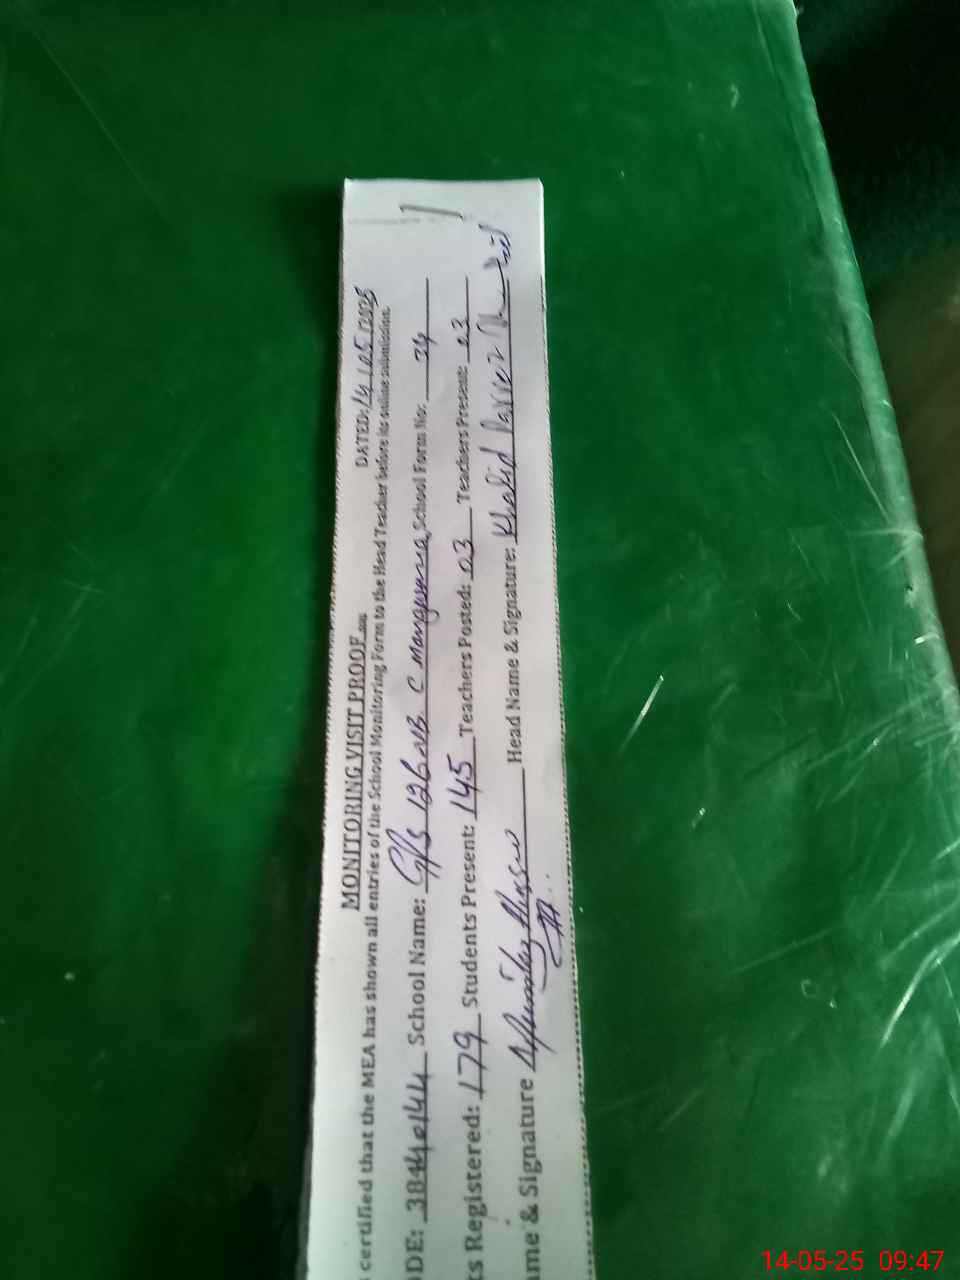 MONITORING VISIT PROOF DATED: 14/05/2025
certified that the MEA has shown all entries of the School Monitoring Form to the Head Teacher before its online submission.
ODE: 38440144 School Name: GPS 126 NB C School Form No: 34
ts Registered: 179 Students Present: 145 Teachers Posted: 03 Teachers Present: 03
ame & Signature Head Name & Signature: Khalid Parvez
14-05-25 09:47